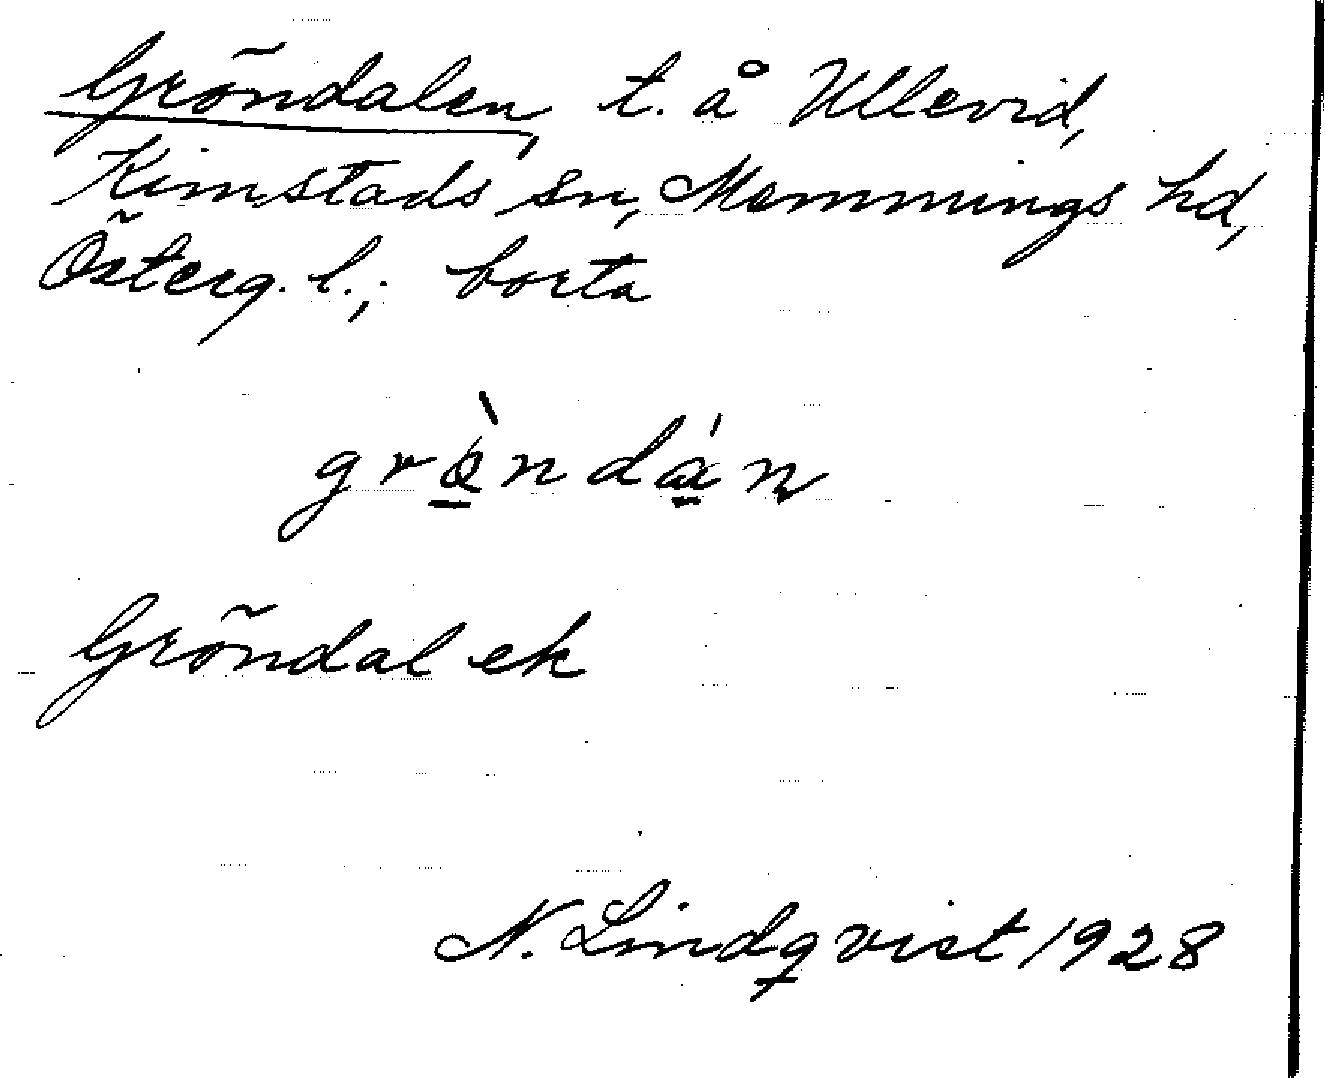 Gröndalen, t. å Ullevid,
Kimstads sn, Memmings hd,
Österg. l.; borta
grö̀ndán
Gröndal ek
N. Lindqvist 1928